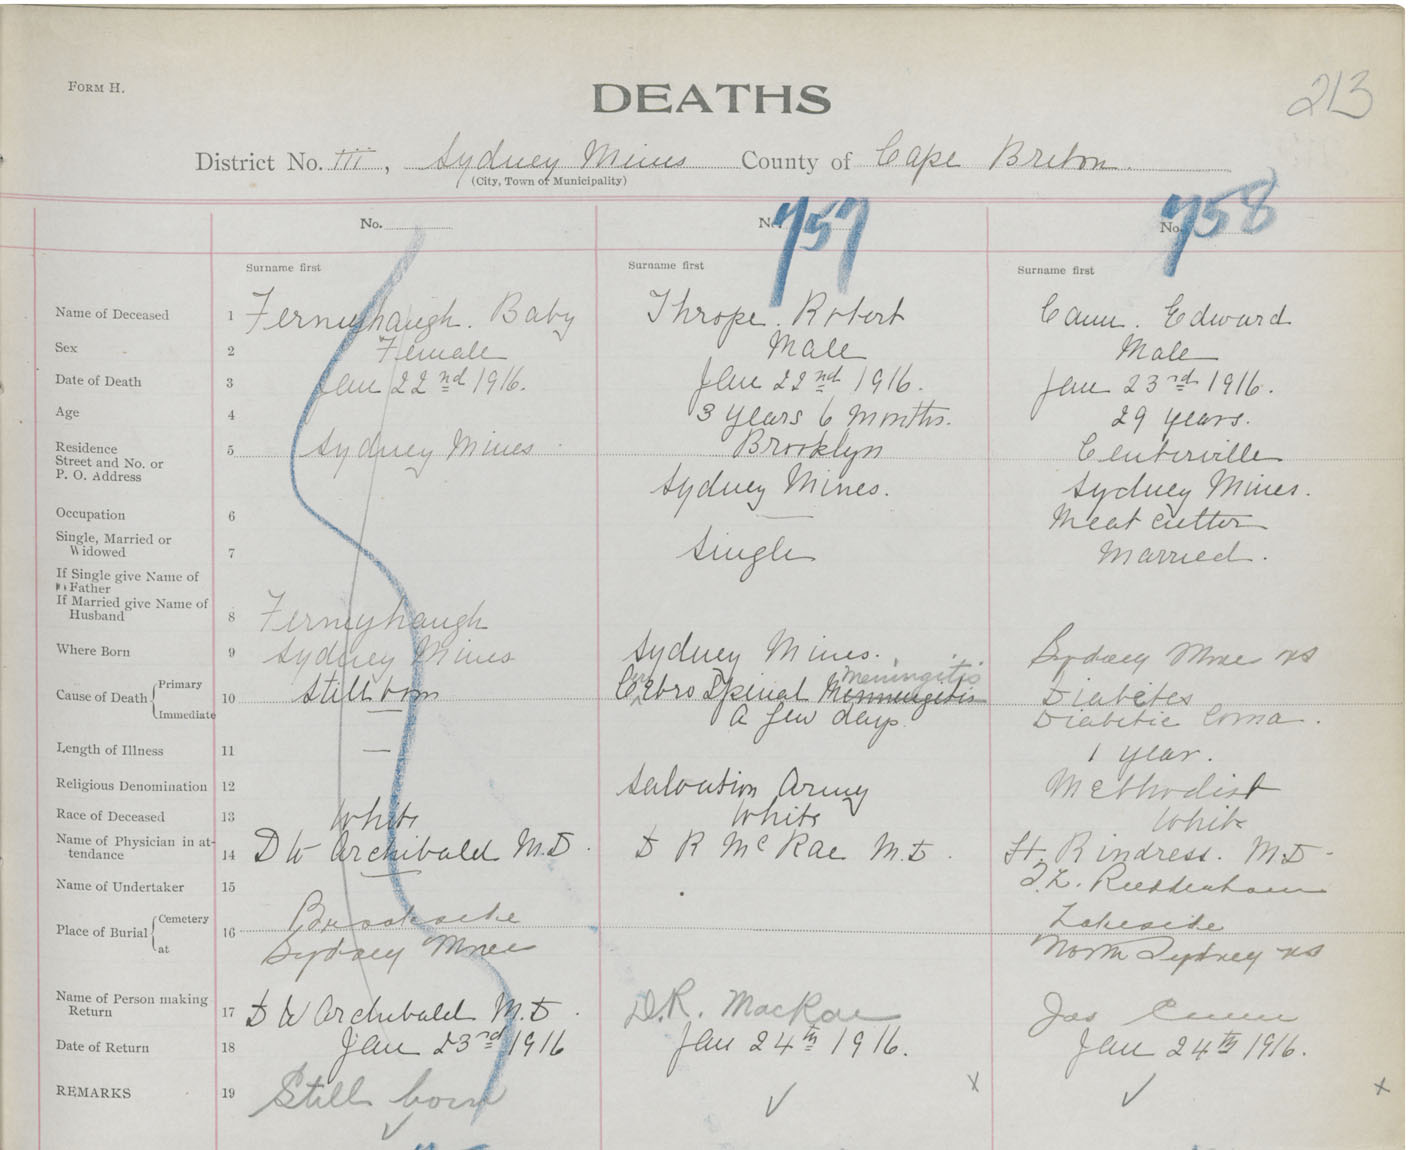 FORM H.
DEATHS
213
District No. III, Sydney Mines County of Cape Breton.
(City, Town or Municipality)
No. No. 757 No. 758
Surname first Surname first Surname first
Name of Deceased 1 Ferneyhaugh. Baby Thrope. Robert Cann. Edward
Sex 2 Female Male Male
Date of Death 3 Jan 22nd 1916. Jan 22nd 1916. Jan 23rd 1916.
Age 4 3 years 6 months. 29 years.
Residence
Street and No. or
P. O. Address
5 Sydney Mines Brooklyn Centerville
Sydney Mines. Sydney Mines.
Occupation 6 — Meat cutter
Single, Married or
Widowed 7 Single Married.
If Single give Name of
Father
If Married give Name of
Husband 8 Ferneyhaugh
Where Born 9 Sydney Mines Sydney Mines. Sydney Mines NS
Cause of Death { Primary 10 Still born Cerebro Spinal Menningitis Meningitis Diabetes
Immediate — A few days. Diabetic Coma.
Length of Illness 11 — 1 year.
Religious Denomination 12 Salvation Army Methodist
Race of Deceased 13 White White White
Name of Physician in at-
tendance 14 D W Archibald M.D. D R McRae M.D. H. Rindress. M.D.
Name of Undertaker 15
Place of Burial { Cemetery 16 Brookside Lakeside
at Sydney Mines North Sydney NS
Name of Person making
Return 17 D W Archibald M.D. D.R. MacRae Jas Cann
Date of Return 18 Jan 23rd 1916 Jan 24th 1916. Jan 24th 1916.
REMARKS 19 Still born ✓ ✓ x ✓ x